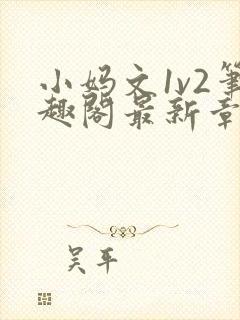 小妈文1v2笔
趣阁最新章
吴平